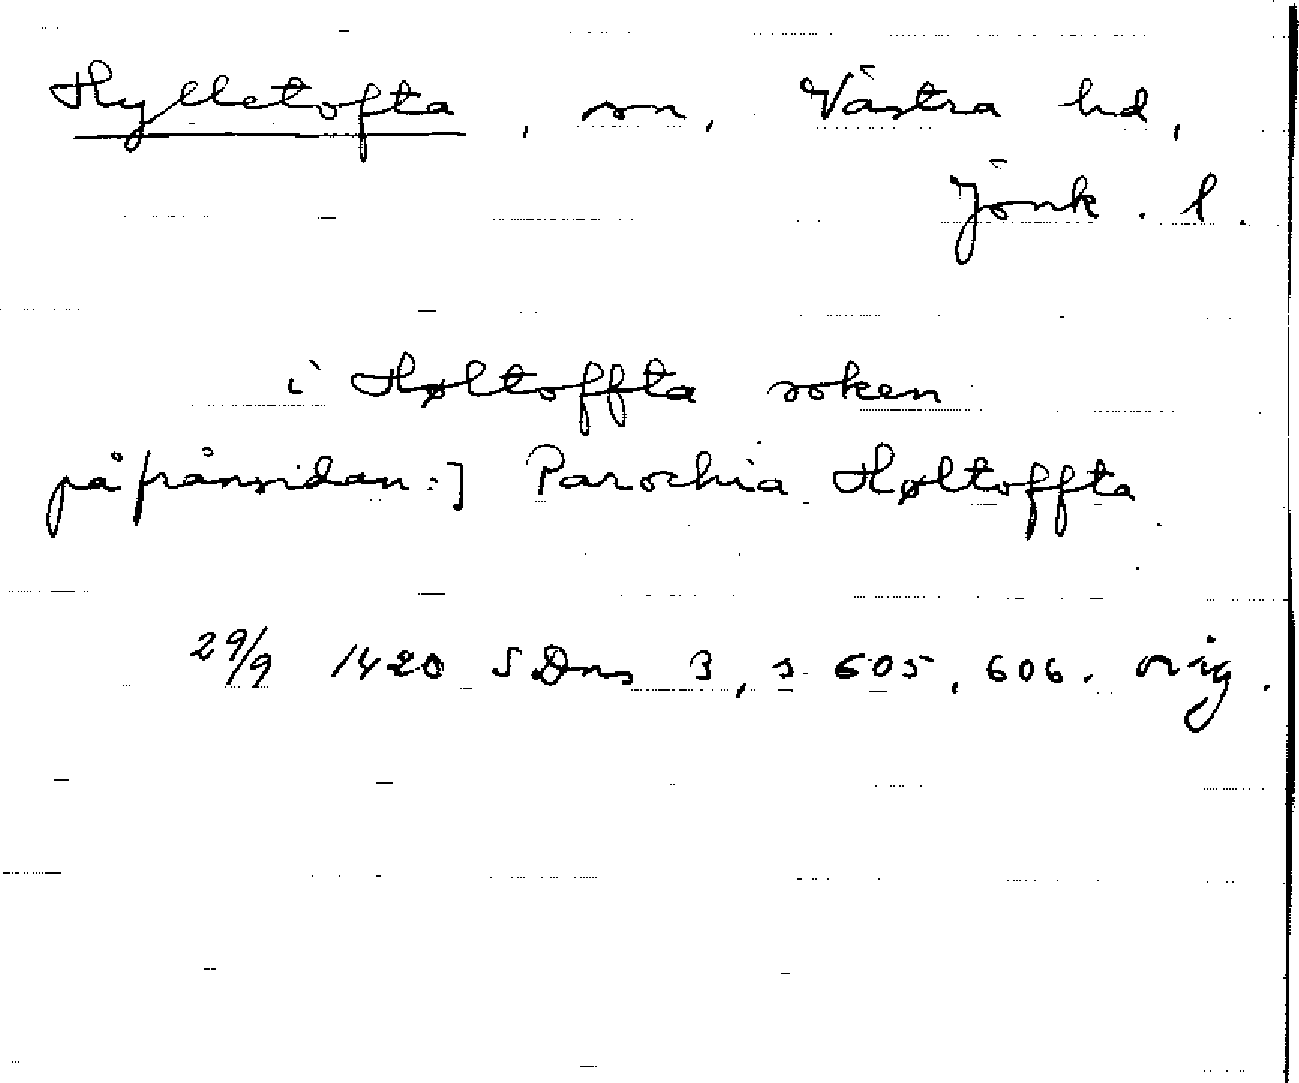 Hylletofta, sn, Västra hd,
Jönk. l.
i Høltoffta soken
på frånsidan:] Parochia Høltoffta
29/9 1420 SDns 3, s 605, 606. orig.